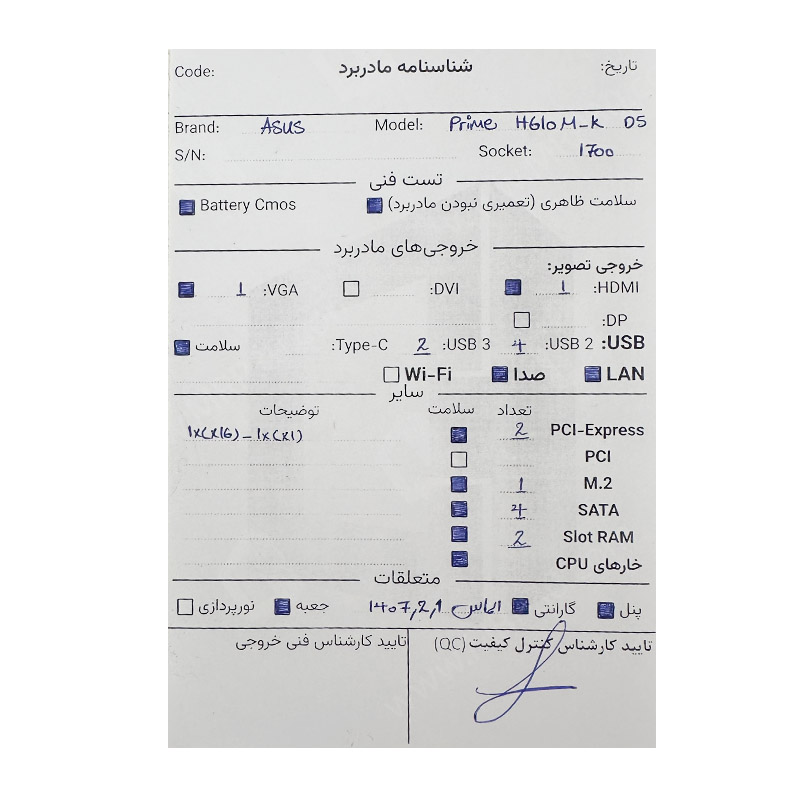 Code: شناسنامه مادربرد تاریخ:
Brand: ASUS Model: Prime H610M-K D5
S/N: Socket: 1700
تست فنی
سلامت ظاهری (تعمیری نبودن مادربرد) Battery Cmos
خروجی‌های مادربرد
خروجی تصویر:
HDMI: 1 DVI: VGA: 1
DP:
USB: USB 2: 4 USB 3: 2 Type-C: سلامت
LAN صدا Wi-Fi
سایر
تعداد سلامت توضیحات
PCI-Express 2 1x(x16) - 1x(x1)
PCI
M.2 1
SATA 4
Slot RAM 2
خارهای CPU
متعلقات
پنل گارانتی الماس 1407,2,1 جعبه نورپردازی
تایید کارشناس کنترل کیفیت (QC) تایید کارشناس فنی خروجی